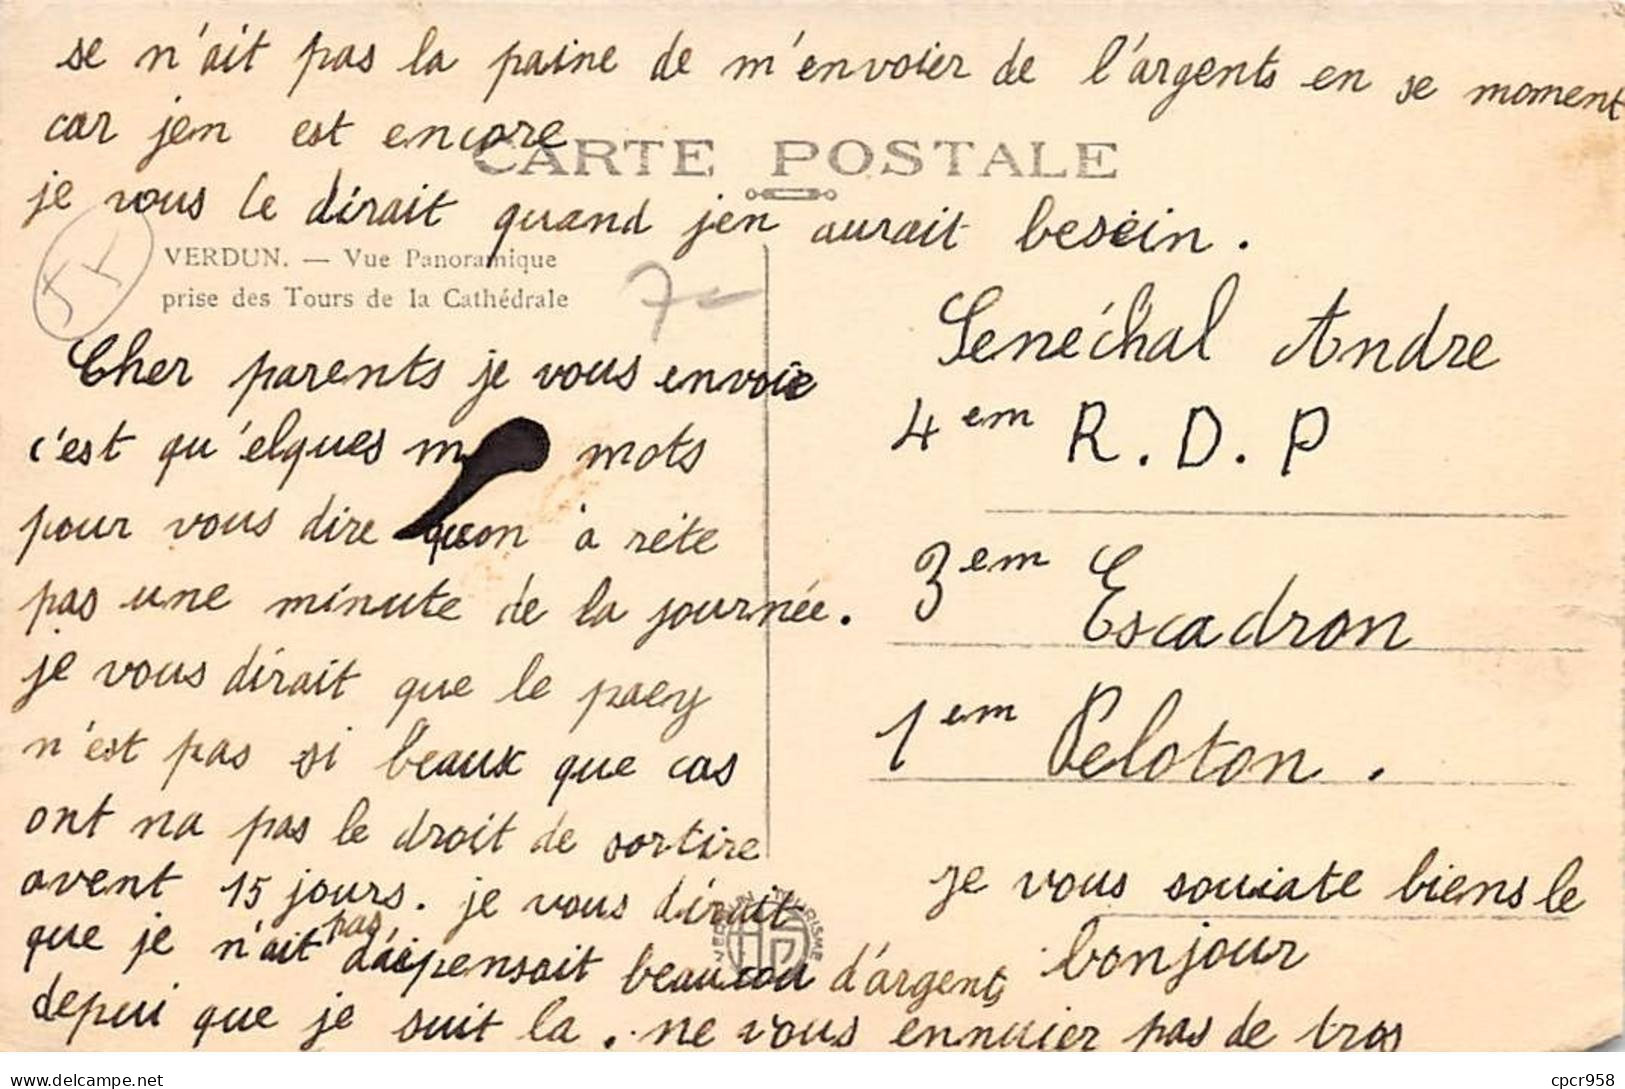 se n'ait pas la paine de m'envoier de l'argents en se moment
car jen est encore
CARTE POSTALE
je vous le dirait quand jen aurait besein.
VERDUN. — Vue Panoramique
prise des Tours de la Cathédrale
7
Cher parents je vous envoie
c'est qu'elques m mots
pour vous dire quon à réte
pas une minute de la journée.
je vous dirait que le paey
n'est pas si beaux que cas
ont na pas le droit de sortire
avent 15 jours. je vous dirait
que je n'ait pas daipensait beaucou d'argent,
depui que je suit la. ne vous ennuier pas de tros
Senéchal Andre
4em R.D.P
3em Escadron
1em Peloton.
je vous souiate biens le
bonjour
cpcr958